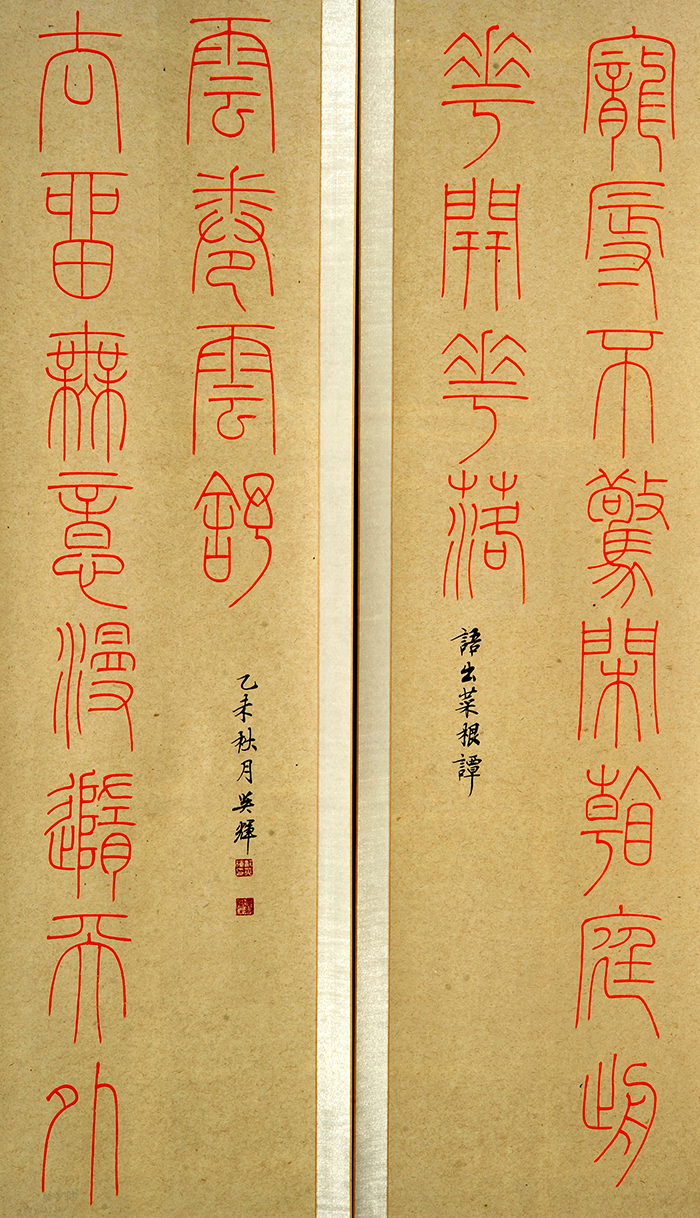 寵辱不驚閑看庭前
花開花落
語出菜根譚
去留無意漫隨天外
雲卷雲舒
乙未秋月吳輝